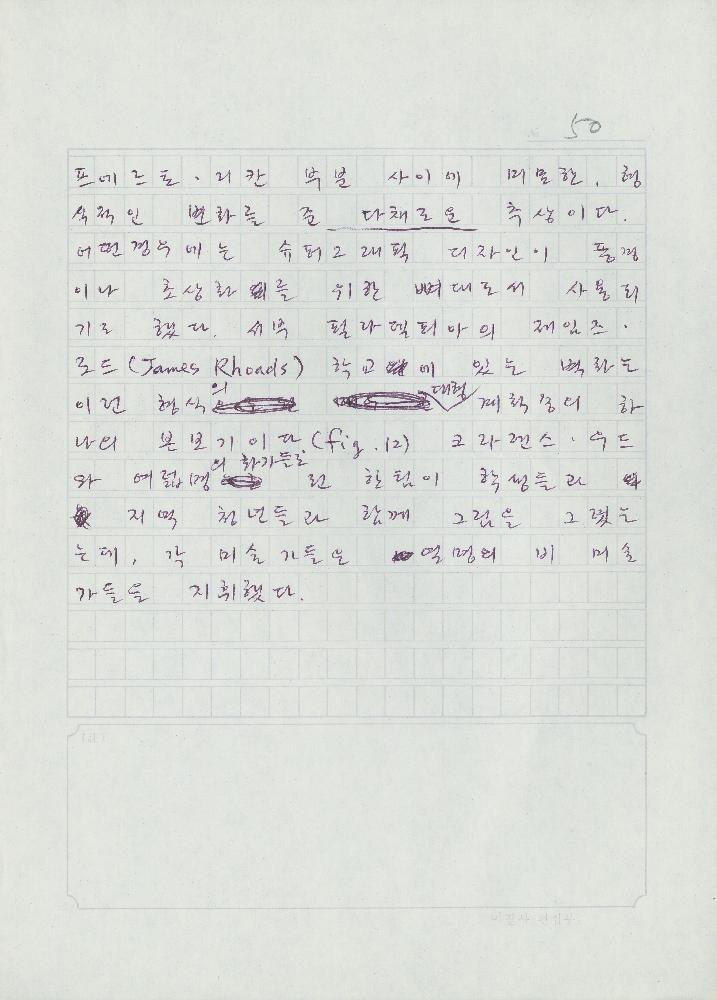 50
프에르토·리칸 부분 사이에 미묘한, 형
식적인 변화를 준 다채로운 추상이다.
어떤경우에는 슈퍼그래픽 디자인이 풍경
이나 초상화를 위한 뼈대로서 사용되
기도 했다. 서부 필라델피아의 제임즈·
로드(James Rhoads) 학교에 있는 벽화는
이런 형식의 대형 계획중의 하
나의 본보기이다(fig.12) 크라렌스·우드
와 여럽명의 화가들로 된 한팀이 학생들과
지역 청년들과 함께 그림을 그렸는
는데, 각 미술가들은 열명의 비 미술
가들을 지휘했다.